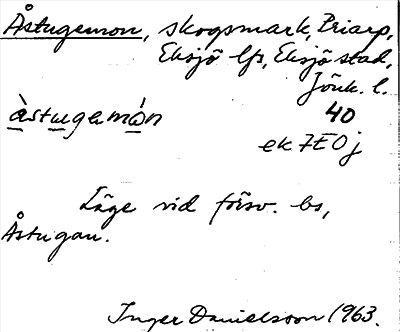 Åstugemon, skogsmark, Priarp,
Eksjö lfs, Eksjö stad,
Jönk. l.
àstugamón 40
ek 7E0j
Läge vid försv. bs,
Åstugan.
Inger Danielsson 1963.